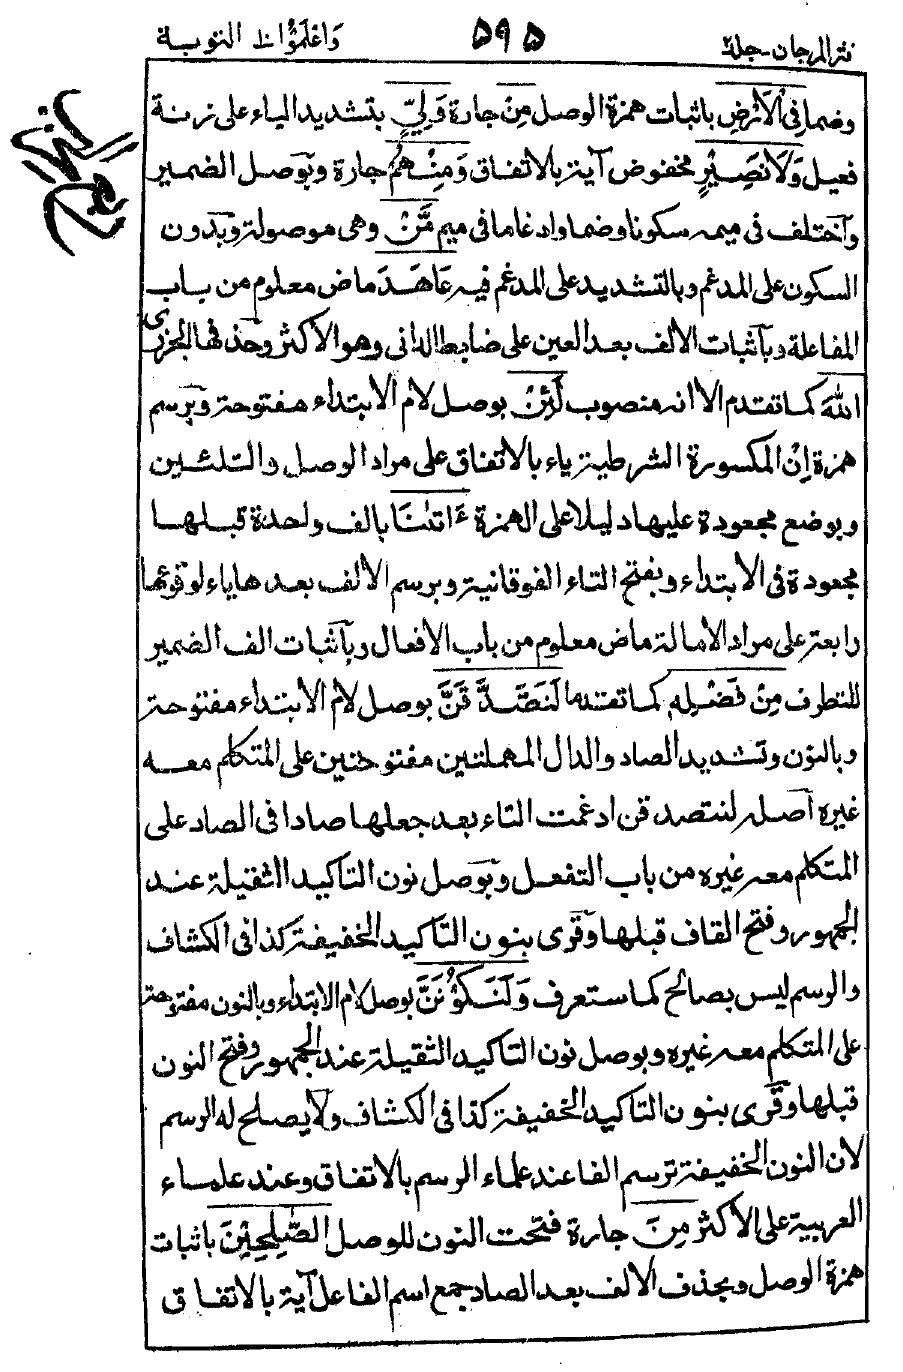 نثر المرجان-جلد٢ ٥٩٥ واعلموا١٠ التوبة
وضما فِي الْاَرْضِ باثبات همزة الوصل مِنْ جارة وَلِيٍّ بتشديد الياء على زنة
فعيل وَلَا نَصِيْرٍ مخفوض آية بالاتفاق وَمِنْهُمْ جارة وبوصل الضمير
واختلف في ميمه سكونا وضما وادغاما في ميم مَّنْ وهى موصولة وبدون
السكون على المدغم وبالتشديد على المدغم فيه عَاهَدَ ماض معلوم من باب
المفاعلة وباثبات الالف بعد العين على ضابط الدانى وهو الاكثر وحذفها الجزرى
اللهَ كما تقدم الا انه منصوب لَئِنْ بوصل لام الابتداء مفتوحة وبرسم
همزة اِنْ المكسورة الشرطية ياء بالاتفاق على مراد الوصل والتلئين
وبوضع مجعودة عليها دليلا على الهمزة ءَاتٰىنَا بالف واحدة قبلها
مجعودة فى الابتداء وبفتح التاء الفوقانية وبرسم الالف بعدها ياء لوقوعها
رابعة على مراد الامالة ماض معلوم من باب الافعال وباثبات الف الضمير
للتطرف مِنْ فَضْلِهٖ كما تقدم لَنَصَّدَّقَنَّ بوصل لام الابتداء مفتوحة
وبالنون وتشديد الصاد والدال المهملتين مفتوحتين على المتكلم معه
غيره اصله لنتصدقن ادغمت التاء بعد جعلها صادا فى الصاد على
المتكلم معه غيره من باب التفعل وبوصل نون التاكيد الثقيلة عند
الجمهور وفتح القاف قبلها وقرى بنون التاكيد الخفيفة كذا فى الكشاف
والرسم ليس بصالح كما ستعرف وَلَنَكُوْنَنَّ بوصل لام الابتداء وبالنون مفتوحة
على المتكلم معه غيره وبوصل نون التاكيد الثقيلة عند الجمهور وفتح النون
قبلها وقرى بنون التاكيد الخفيفة كذا فى الكشاف ولا يصلح له الرسم
لان النون الخفيفة ترسم الفا عند علماء الرسم بالاتفاق وعند علماء
العربية على الاكثر مِنَ جارة فتحت النون للوصل الصّٰلِحِيْنَ باثبات
همزة الوصل وبحذف الالف بعد الصاد جمع اسم الفاعل آية بالاتفاق